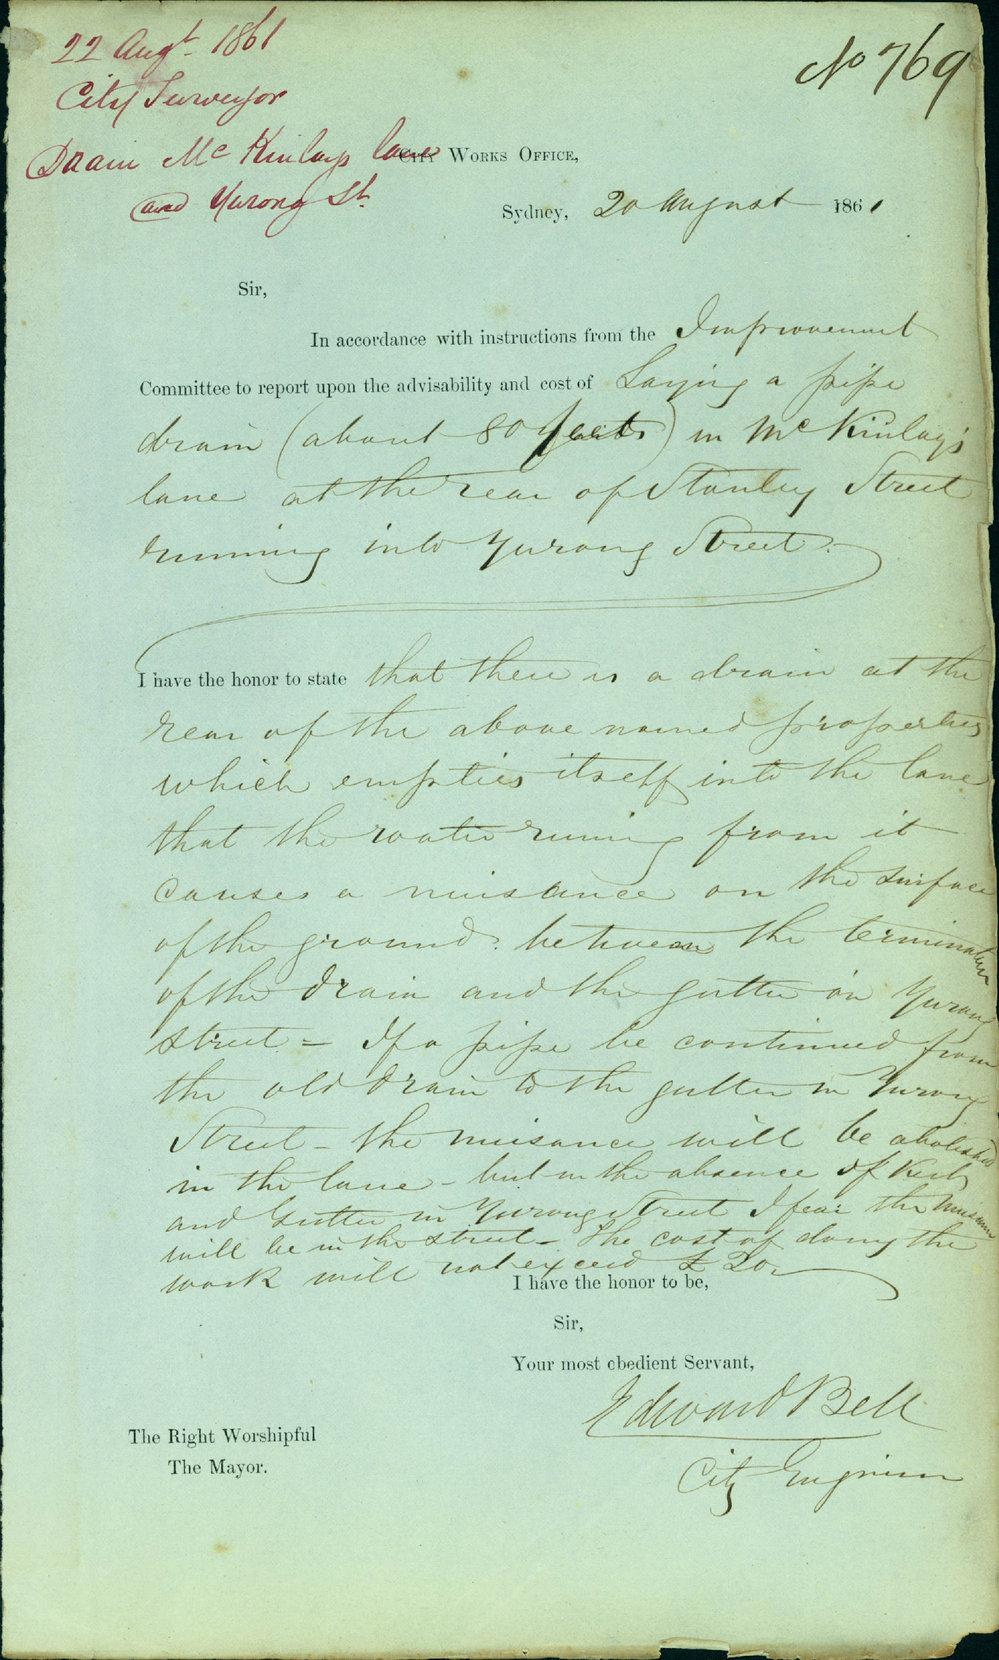 22 Augt. 1861
No 769
City Surveyor
Drain McKinlays lane
and Yurong St.
City Works Office,
Sydney, 20 August 1861
Sir,
In accordance with instructions from the Improvement
Committee to report upon the advisability and cost of Laying a pipe
drain (about 80 feet) in McKinlay's
lane at the rear of Stanley Street
running into Yurong Street.
I have the honor to state that there is a drain at the
rear of the above named properties
which empties itself into the lane
that the water runing from it
causes a nuisance on the surface
of the ground. between the termination
of the drain and the gutter in Yurong
street - If a pipe be continued from
the old drain to the gutter in Yurong
Street - the nuisance will be abolished
in the lane - but in the absence of Kerb
and Gutter in Yurong Street I fear the nuisance
will be in the street - The cost of doing the
work will not exceed £20
I have the honor to be,
Sir,
Your most obedient Servant,
Edward Bell
City Engineer
The Right Worshipful
The Mayor.